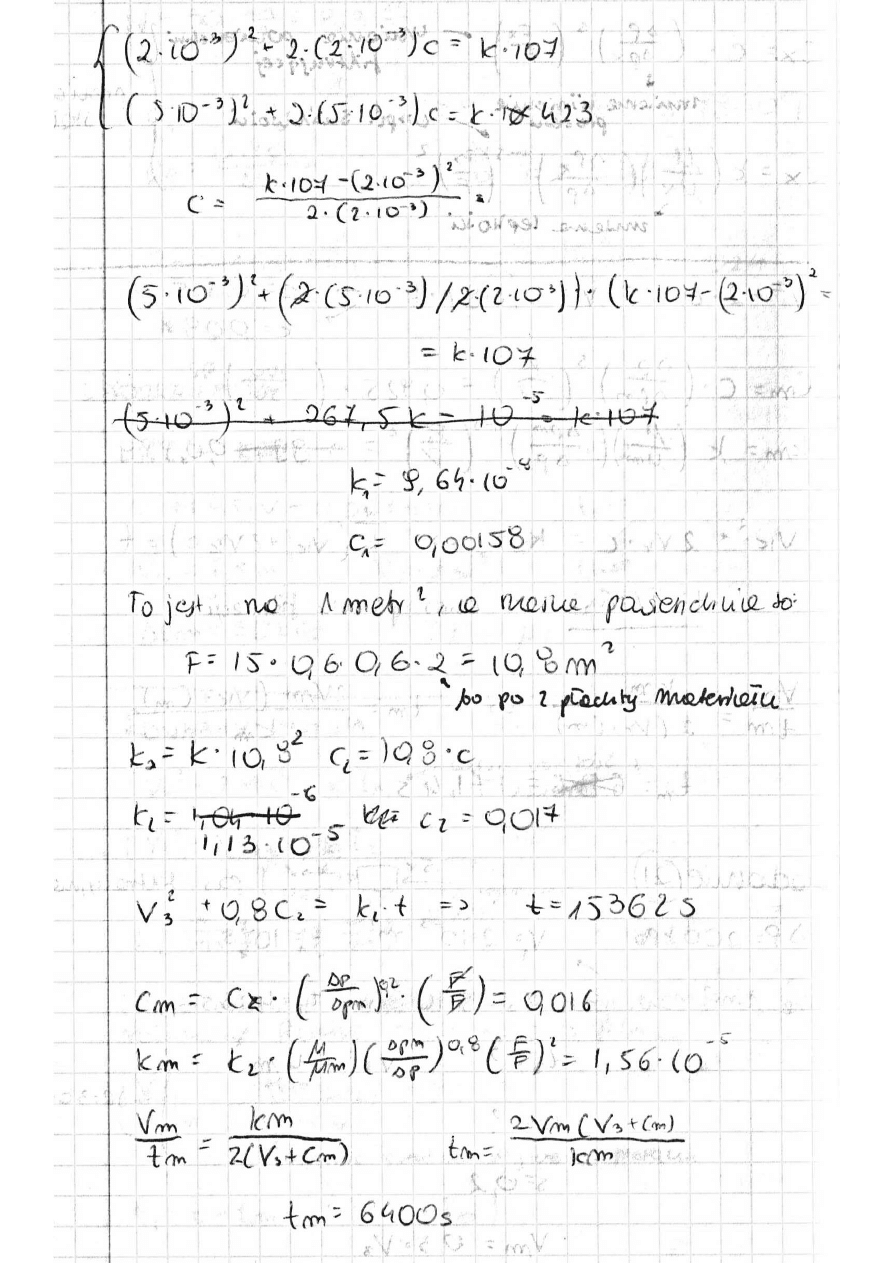 (2·10⁻³)² - 2·(2·10⁻³)c = k·107
(5·10⁻³)² + 2·(5·10⁻³)c = k· 423
C = \frac{k·107-(2·10⁻³)²}{2·(2·10⁻³)}
(5·10⁻³)² + (2·(5·10⁻³)/2·(2·10⁻³))·(k·107-(2·10⁻³)² =
= k·107
(5·10⁻³)² + 267,5k - 10⁻⁵ = k·107
k₁ = 9,64·10⁻⁸
C₁ = 0,00158
To jest na 1 metr², a nasza powierzchnia to:
F = 15·0,6·0,6·2 = 10,8 m²
bo po 2 płachty materiału
k₂ = k·10,8² C₂ = 10,8·c
k₂ = 1,04·10⁻⁶ C₂ = 0,017
1,13·10⁻⁵
V₃² + 0,8C₂ = k₂·t => t = 15362 s
Cm = C₂·(\frac{Δp}{Δpm})^{0,2}·(\frac{F}{F}) = 0,016
km = k₂·(\frac{μ}{μm})(\frac{Δpm}{Δp})^{0,8}(\frac{F}{F})² = 1,56·10⁻⁵
\frac{Vm}{tm} = \frac{km}{2(V₃+Cm)} tm = \frac{2Vm(V₃+Cm)}{km}
tm = 6400s